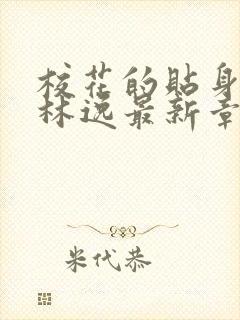 校花的贴身
林逸最新章
米代恭